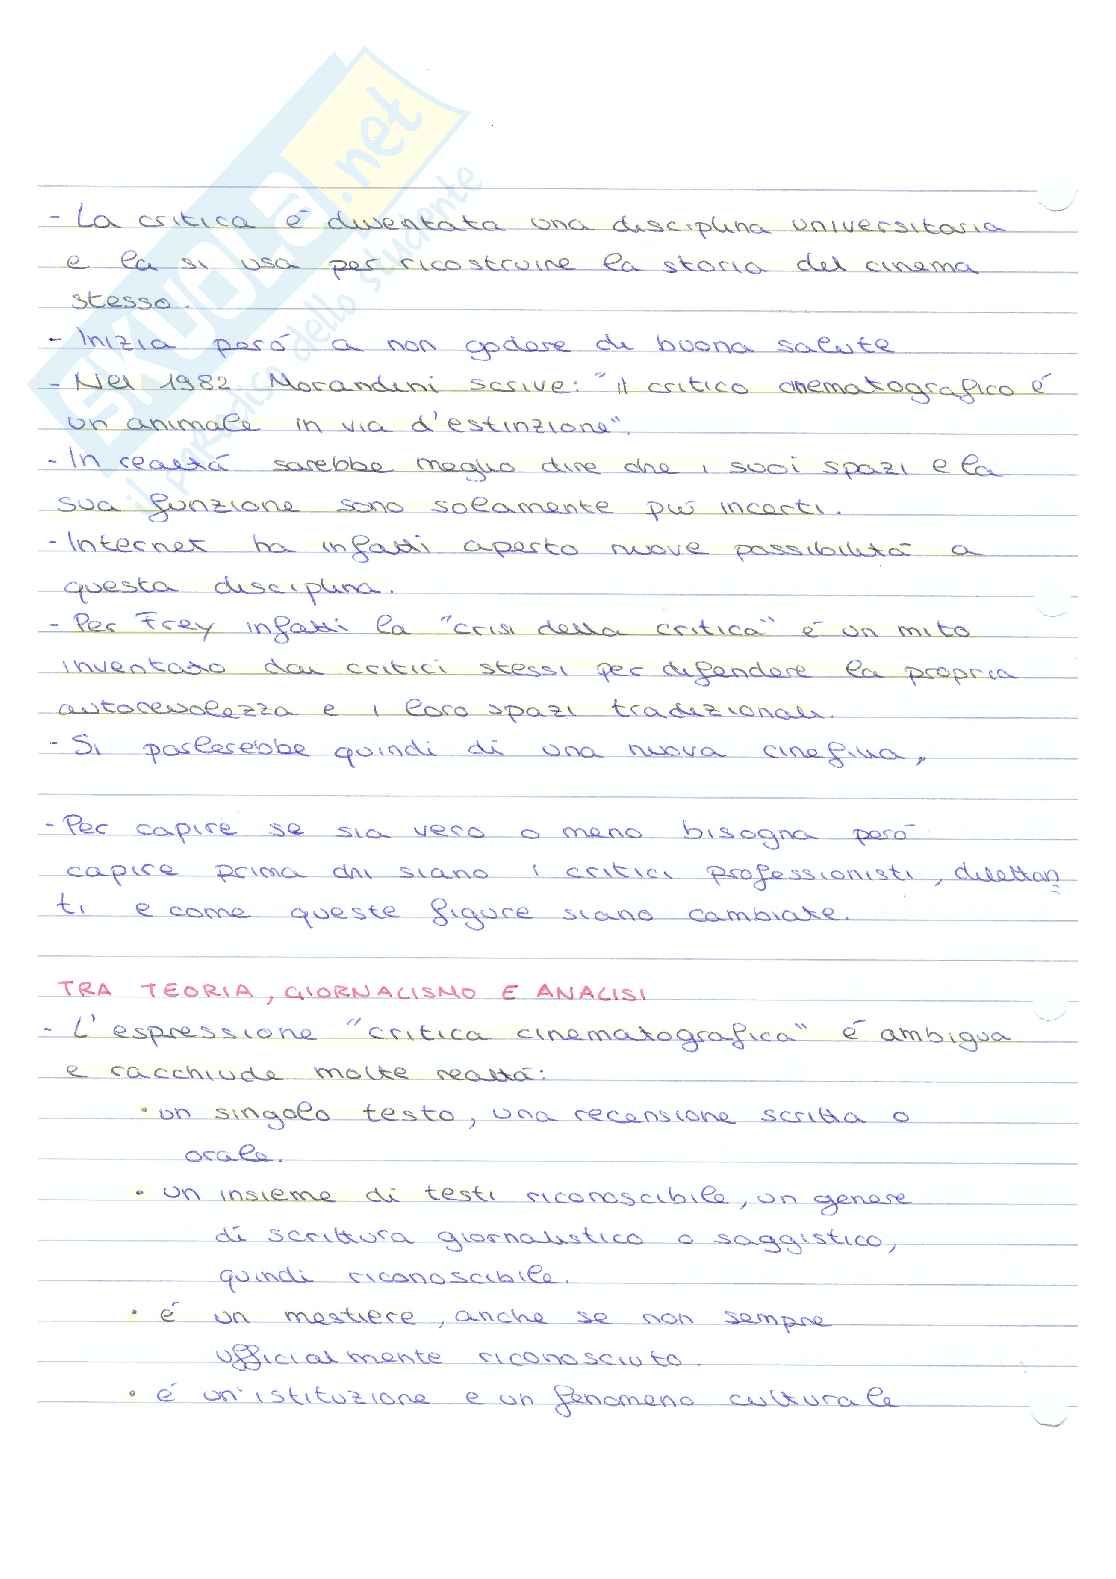 SKUOLA.net
il paradiso dello studente
- La critica é diventata una disciplina universitaria
e la si usa per ricostruire la storia del cinema
stesso.
- Inizia peró a non godere di buona salute
- Nel 1982 Morandini scrive: "il critico cinematografico é
un animale in via d'estinzione".
- In realtá sarebbe meglio dire che i suoi spazi e la
sua funzione sono solamente piú incerti.
- Internet ha infatti aperto nuove possibilitá a
questa disciplina.
- Per Frey infatti la "crisi della critica" é un mito
inventato dai critici stessi per difendere la propria
autorevolezza e i loro spazi tradizionali.
- Si parlerebbe quindi di una nuova cinefilia,
- Per capire se sia vero o meno bisogna peró
capire prima chi siano i critici professionisti, dilettan
ti e come queste figure siano cambiate.
TRA TEORIA, GIORNALISMO E ANALISI
- L'espressione "critica cinematografica" é ambigua
e racchiude molte realtá:
• un singolo testo, una recensione scritta o
orale.
• un insieme di testi riconoscibile, un genere
di scrittura giornalistico o saggistico,
quindi riconoscibile.
• é un mestiere, anche se non sempre
ufficialmente riconosciuto.
• é un'istituzione e un fenomeno culturale